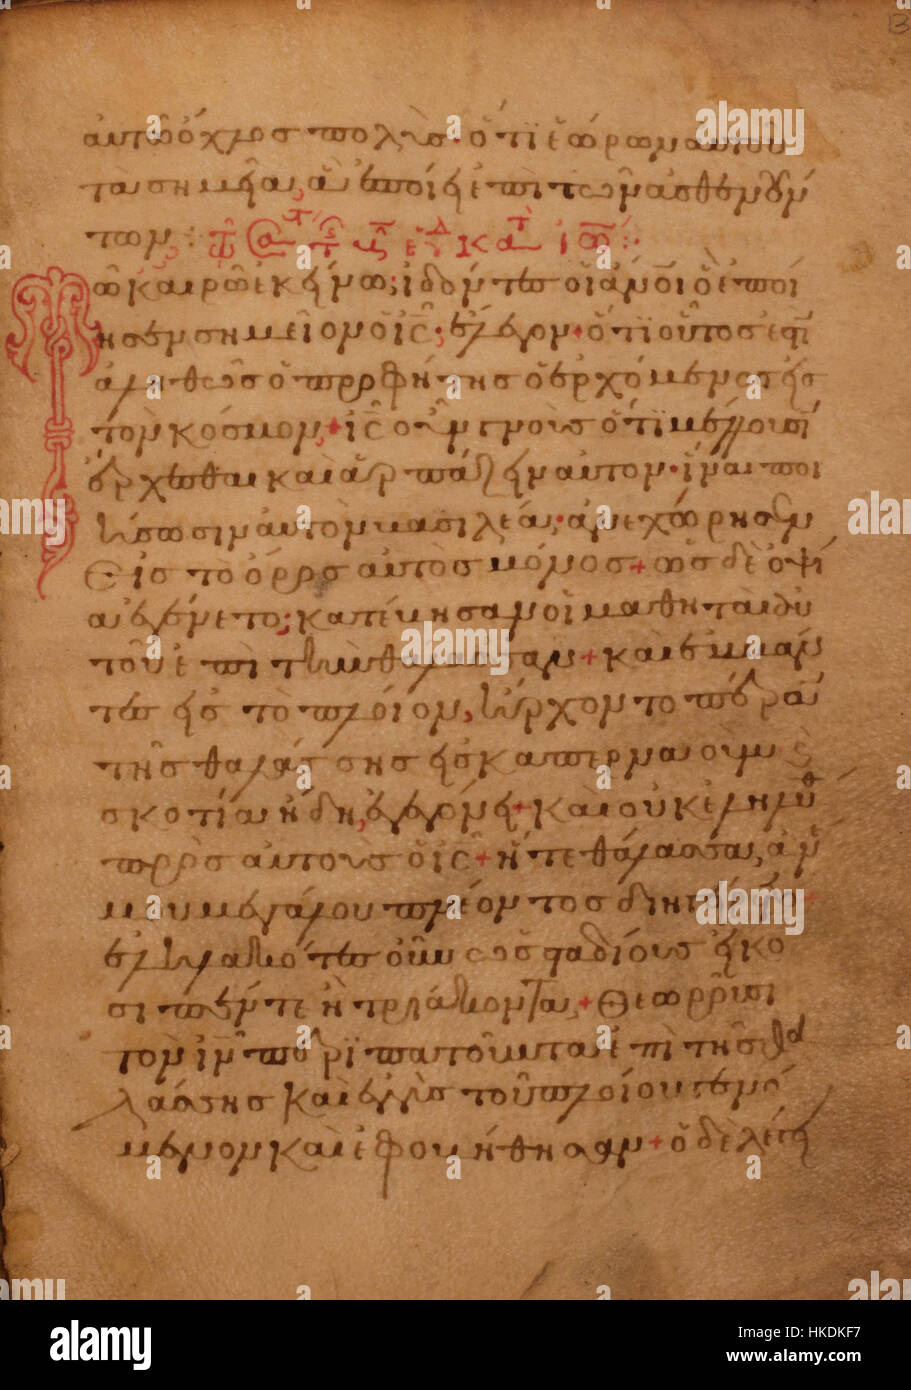 13
αυτῶ ὄχλος πολὺς· ὅτι ἑώρων αυτοῦ
τὰ σημεῖα, ἃ ἐποίει ἐπὶ τῶν ἀσθενούν
των :
ῶ καιρῶ ἐκείνω; ἰδόντες οἱ ἄνοι ὃ ἐποί
ησεν σημεῖον ὁ ις; ἔλεγον+ ὅτι οὗτος ἐστὶ
ἀληθῶς ὁ προφήτης ὁ ἐρχόμενος εἰς
τὸν κόσμον+ ις οὖν γνοὺς ὅτι μέλλουσι
ἔρχεσθαι καὶ ἁρπάζειν αυτον· ἵνα ποι
ήσωσιν αὐτὸν βασιλέα; ἀνεχώρησεν
εἰς τὸ ὄρος αυτὸς μόνος+ ὡς δὲ ὀψί
α ἐγένετο; κατέβησαν οἱ μαθηταὶ αυ
τοῦ ἐπὶ τὴν θάλασσαν+ καὶ ἐμβάν
τες εἰς τὸ πλοίον, ἤρχοντο πέραν
τῆς θαλάσσης εἰς καπερναούμ
σκοτία ἤδη, ἐγεγόνει+ καὶ οὐκ ἐληλύθ
πρὸς αυτοὺς ὁ ις+ ἥ τε θάλασσα, ἀν
μου μεγάλου πνέοντος
ἐληλακότες οὖν ὡς σταδίους εἴκο
σι πέντε ἢ τριάκοντα,+ θεωροῦσι
τὸν ιν περιπατοῦντα ἐπὶ τῆς θα
λάσσης καὶ ἐγγὺς τοῦ πλοίου γενό
μενον καὶ ἐφοβήθησαν+ ὁ δὲ λέγει
alamy
Image ID: HKDKF7
www.alamy.com